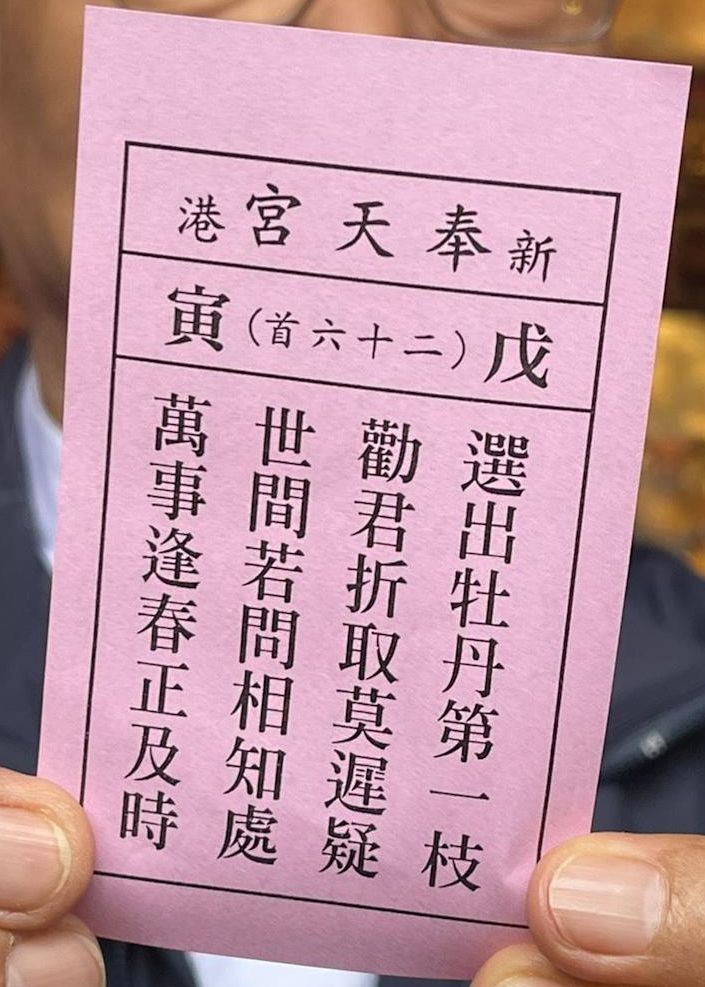 新奉天宮港
戊(二十六首)寅
選出牡丹第一枝
勸君折取莫遲疑
世間若問相知處
萬事逢春正及時